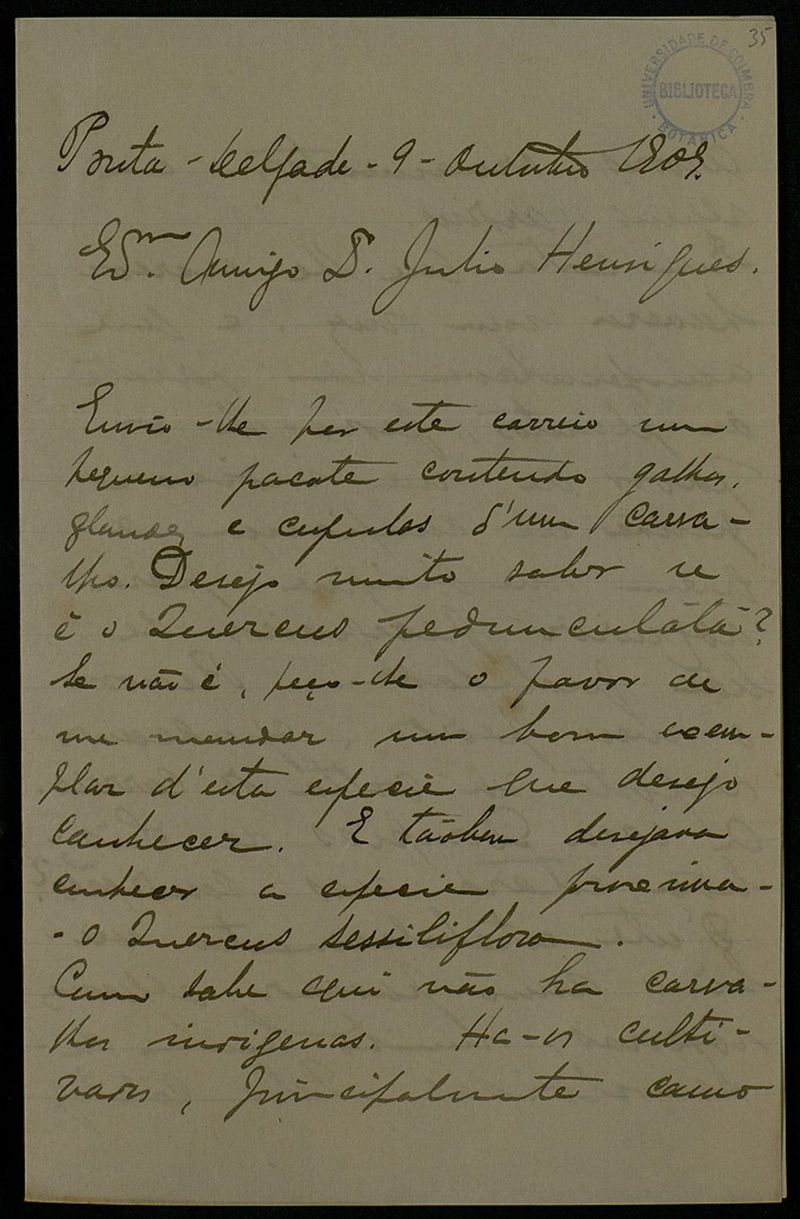 35
UNIVERSIDADE DE COIMBRA
BIBLIOTECA
BOTANICA
Ponta-Delgada - 9 - Outubro 1909.
Exmº. Amigo Dr. Julio Henriques.
Envio-lhe por este correio um
pequeno pacote contendo galhos,
glandes e cupulas d'um carva-
lho. Desejo muito saber se
é o Quercus pedunculata?
Se não é, peço-lhe o favor de
me mandar um bom exem-
plar d'esta especie que desejo
conhecer. E tãobem desejava
conhecer a especie proxima-
- o Quercus sessiliflora.
Como sabe aqui não ha carva-
lhos indigenas. Ha-os culti-
vados, principalmente como